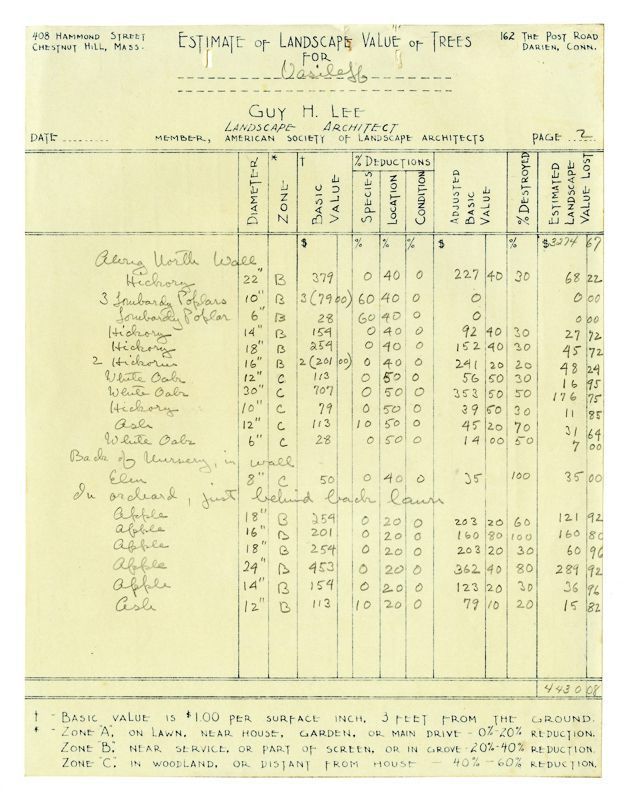 408 HAMMOND STREET
CHESTNUT HILL, MASS.
ESTIMATE OF LANDSCAPE VALUE OF TREES
FOR
Vasileff
162 THE POST ROAD
DARIEN, CONN.
GUY H. LEE
LANDSCAPE ARCHITECT
DATE MEMBER, AMERICAN SOCIETY OF LANDSCAPE ARCHITECTS PAGE 2
DIAMETER * ZONE † BASIC VALUE % DEDUCTIONS SPECIES LOCATION CONDITION ADJUSTED BASIC VALUE % DESTROYED ESTIMATED LANDSCAPE VALUE LOST
$ % % % $ % $3274 67
Along North Wall
Hickory 22" B 379 0 40 0 227 40 30 68 22
3 Lombardy Poplars 10" B 3(79 00) 60 40 0 0 0 00
Lombardy Poplar 6" B 28 60 40 0 0 0 00
Hickory 14" B 154 0 40 0 92 40 30 27 72
Hickory 18" B 254 0 40 0 152 40 30 45 72
2 Hickories 16" B 2(201 00) 0 40 0 241 20 20 48 24
White Oak 12" C 113 0 50 0 56 50 30 16 95
White Oak 30" C 707 0 50 0 353 50 50 176 75
Hickory 10" C 79 0 50 0 39 50 30 11 85
Ash 12" C 113 10 50 0 45 20 70 31 64
White Oak 6" C 28 0 50 0 14 00 50 7 00
Back of Nursery, in wall
Elm 8" C 50 0 40 0 35 100 35 00
In orchard, just behind back lawn
Apple 18" B 254 0 20 0 203 20 60 121 92
Apple 16" B 201 0 20 0 160 80 100 160 80
Apple 18" B 254 0 20 0 203 20 30 60 96
Apple 24" B 453 0 20 0 362 40 80 289 92
Apple 14" B 154 0 20 0 123 20 30 36 96
Ash 12" B 113 10 20 0 79 10 20 15 82
4430 08
† - BASIC VALUE IS $1.00 PER SURFACE INCH, 3 FEET FROM THE GROUND.
* - ZONE "A", ON LAWN, NEAR HOUSE, GARDEN, OR MAIN DRIVE - 0%-20% REDUCTION.
ZONE "B", NEAR SERVICE, OR PART OF SCREEN, OR IN GROVE - 20%-40% REDUCTION.
ZONE "C", IN WOODLAND, OR DISTANT FROM HOUSE - 40%-60% REDUCTION.